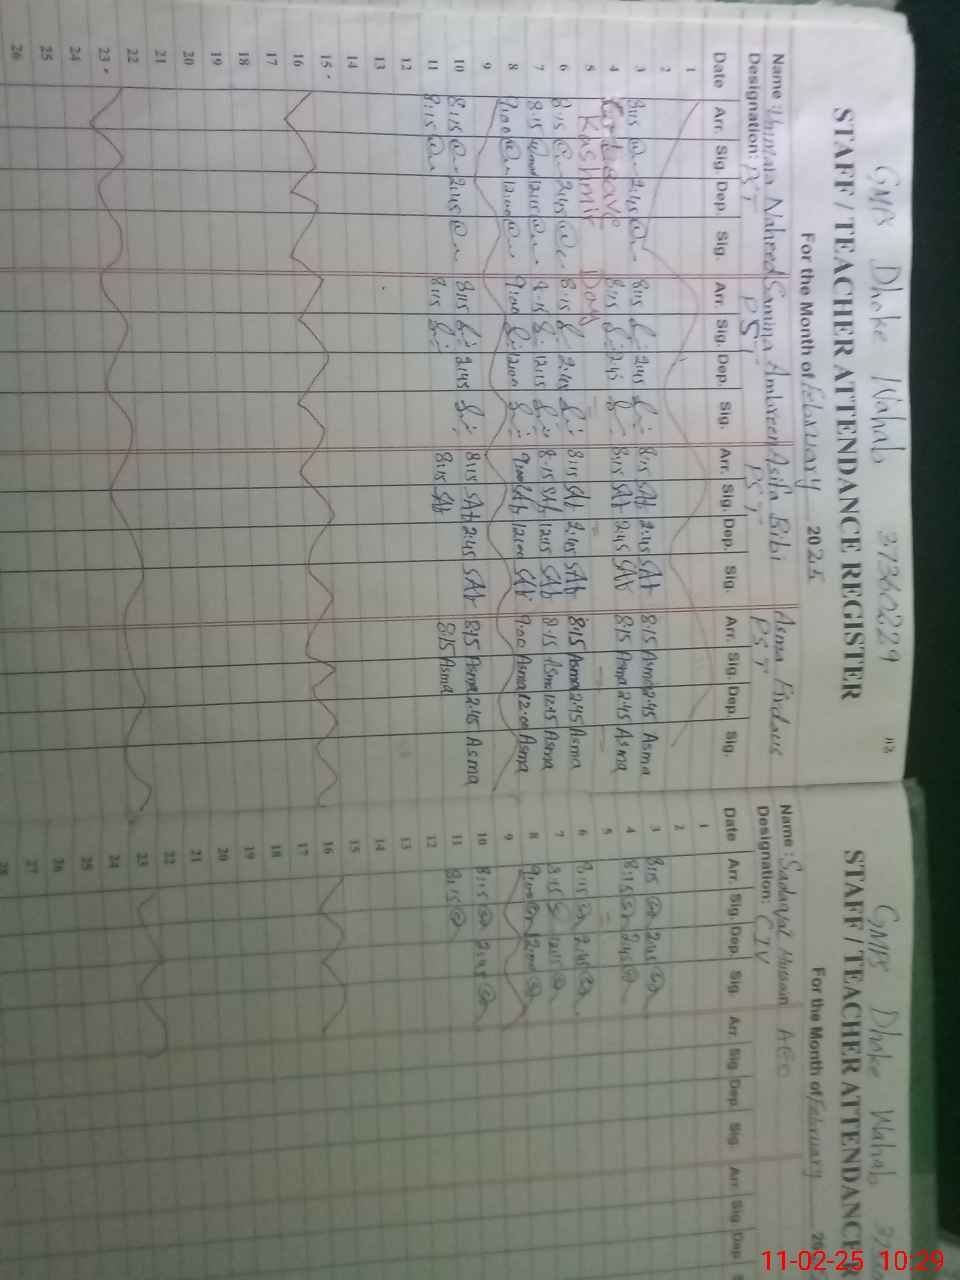 GMPS Dhoke Wahab 37340229
STAFF / TEACHER ATTENDANCE REGISTER
For the Month of February 2025
Name : Naheed Samina Ambreen Asifa Bibi Asma Firdaus
Designation: PST PST PST PST
Date Arr. Sig. Dep. Sig. Arr. Sig. Dep. Sig. Arr. Sig. Dep. Sig. Arr. Sig. Dep. Sig.
1
2
3 8:15 2:45 8:15 2:45 8:15 2:45 8:15 Asma 2:45 Asma
4 Leave 8:15 2:45 8:15 2:45 8:15 Asma 2:45 Asma
5 Kashmir Day
6 8:15 2:45 8:15 2:45 8:15 2:45 8:15 Asma 2:45 Asma
7 8:15 12:15 8:15 12:15 8:15 12:15 8:15 Asma 12:15 Asma
8 9:00 12:00 9:00 12:00 9:00 12:00 9:00 Asma 12:00 Asma
9
10 8:15 2:45 8:15 2:45 8:15 2:45 8:15 Asma 2:45 Asma
11 8:15 8:15 8:15 8:15 Asma
12
13
14
15
16
17
18
19
20
21
22
23
24
25
26
GMPS Dhoke Wahab
STAFF / TEACHER ATTENDANCE
For the Month of February 20
Name : Hussain
Designation: CIV
Date Arr. Sig. Dep. Sig. Arr. Sig. Dep. Sig. Arr. Sig. Dep.
1
2
3 8:15 2:45
4 8:15 2:45
5
6 8:15 2:45
7 8:15 12:15
8 9:00 12:00
9
10 8:15 2:45
11 8:15
12
13
14
15
16
17
18
19
20
21
22
23
24
25
26
27
28
11-02-25 10:29